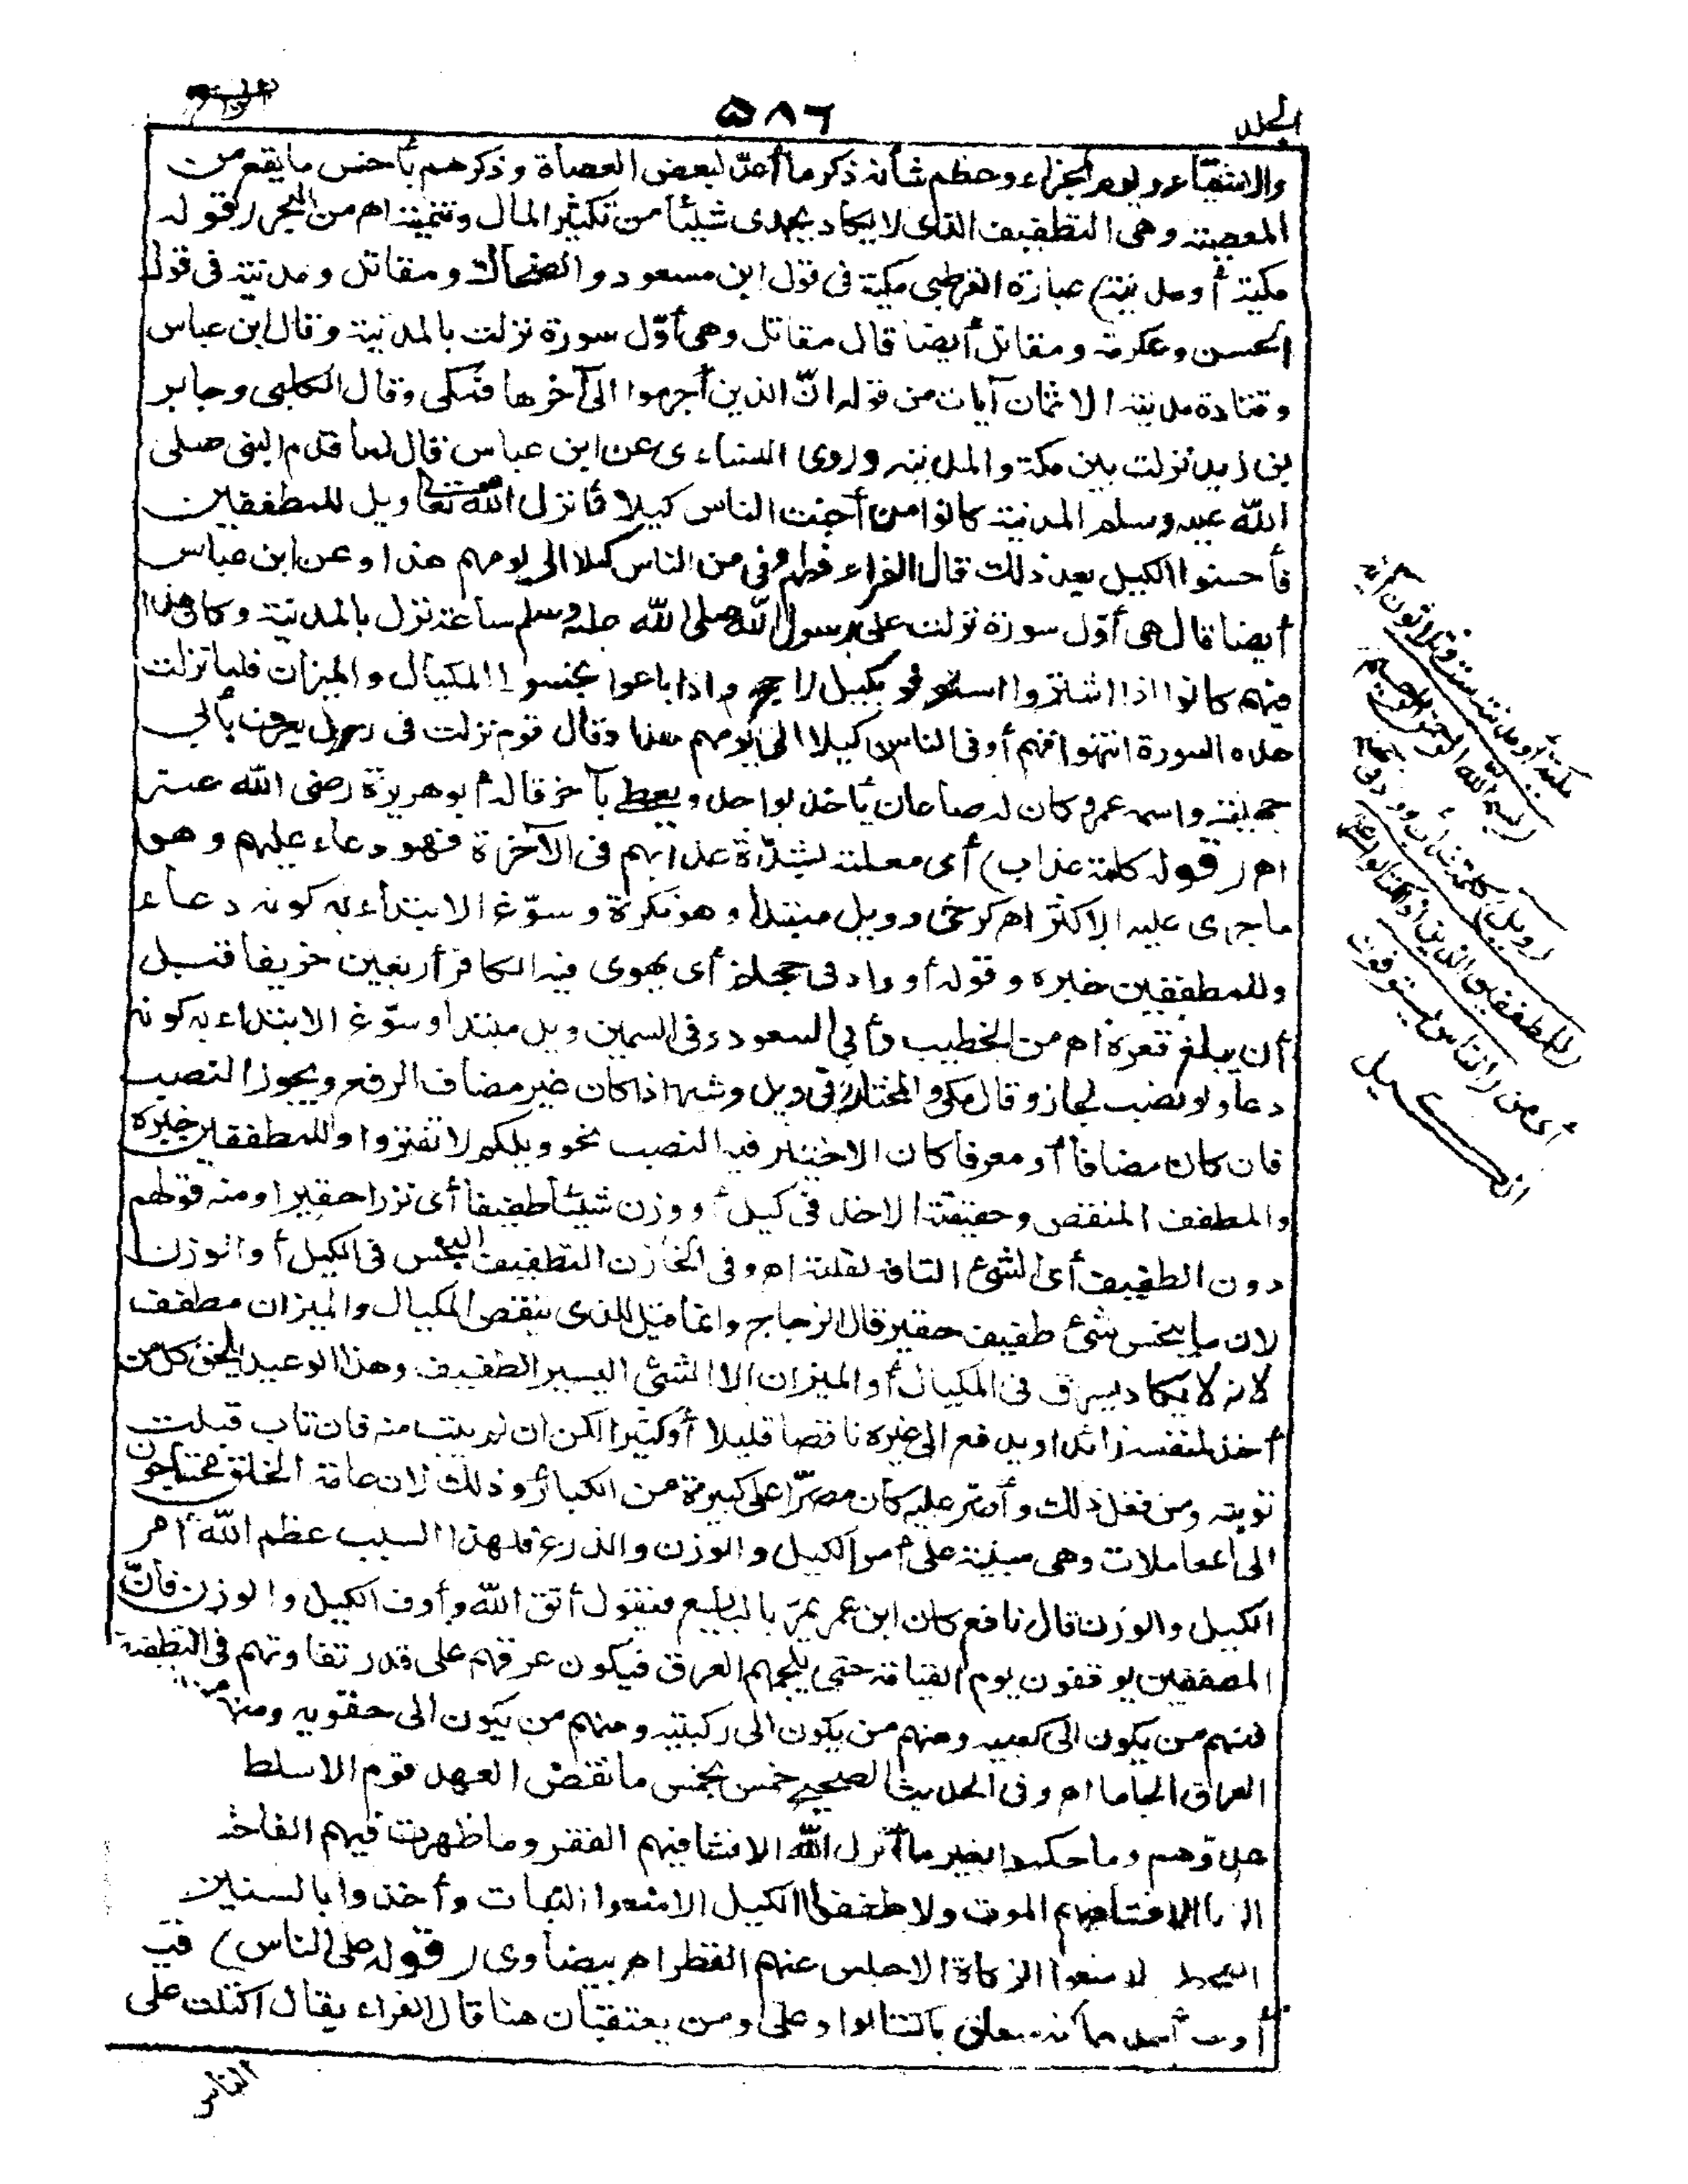 الجلد
٥٨٦
والاشقياء ويوم الجزاء وعظم شأنه ذكر ما أعدّ لبعض العصاة وذكرهم بأخس ما يقع من
المعصية وهى التطفيف الذى لا يكاد يجدى شيئا من تكثير المال وتنميته اه من البحر (قوله
مكية أو مدنية) عبارة القرطبى مكية فى قول ابن مسعود والضحاك ومقاتل ومدنية فى قول
الحسن وعكرمة ومقاتل أيضا قال مقاتل وهى أوّل سورة نزلت بالمدينة وقال ابن عباس
وقتادة مدنية الا ثمان آيات من قوله انّ الذين أجرموا الى آخرها فمكى وقال الكلبى وجابر
بن زيد نزلت بين مكة والمدينة وروى النساءى عن ابن عباس قال لما قدم النبى صلى
الله عليه وسلم المدينة كانوا من أخبث الناس كيلا فأنزل الله تعالى ويل للمطففين
فأحسنوا الكيل بعد ذلك قال الفراء فهم أوفى من الناس كيلا الى يومهم هذا وعن ابن عباس
أيضا قال هى أوّل سورة نزلت على رسول الله صلى الله عليه وسلم ساعة نزل بالمدينة وكان هذا
فيهم كانوا اذا اشتروا استوفوا بكيل راجح واذا باعوا بخسوا المكيال والميزان فلما نزلت
هذه السورة انتهوا فهم أوفى الناس كيلا الى يومهم هذا وقال قوم نزلت فى رجل يعرف بأبى
جهينة واسمه عمرو كان له صاعان يأخذ بواحد ويعطى بآخر قاله أبو هريرة رضى الله عنه
اه (قوله كلمة عذاب) أى معلمة بشدّة عذابهم فى الآخرة فهو دعاء عليهم وهو
ما جرى عليه الاكثر اه كرخى وويل مبتدأ وهو نكرة وسوّغ الابتداء به كونه دعاء
وللمطففين خبره وقوله أو واد فى جهنم أى يهوى فيه الكافر أربعين خريفا قبل
أن يبلغ قعره اه من الخطيب وأبى السعود وفى السمين ويل مبتدا وسوّغ الابتداء به كونه
دعاء ولو نصب لجاز وقال مكى والمختار فى ويل وشبهه اذا كان غير مضاف الرفع ويجوز النصب
فان كان مضافا أو معرفا كان الاختيار فيه النصب نحو ويلكم لا تفتروا وللمطففين خبره
والمطفف المنقص وحقيقته الاخذ فى كيل أو وزن شيئا طفيفا أى نزرا حقيرا ومنه قولهم
دون الطفيف أى الشئ التافه لقلته اه وفى الخازن التطفيف البخس فى الكيل أو الوزن
لان ما يبخس شئ طفيف حقير قال الزجاج وانما قيل للذى ينقص المكيال والميزان مطفف
لانه لا يكاد يسرق فى المكيال أو الميزان الا الشئ اليسير الطفيف وهذا الوعيد يلحق كل من
أخذ لنفسه زائدا ويدفع الى غيره ناقصا قليلا أو كثيرا لكن ان لم يتب منه فان تاب قبلت
توبته ومن فعل ذلك وأصر عليه كان مصرّا على كبيرة من الكبائر وذلك لان عامة الخلق محتاجون
الى المعاملات وهى مبنية على أمر الكيل والوزن والذرع فلهذا السبب عظم الله أمر
الكيل والوزن قال نافع كان ابن عمر يمرّ بالبائع فيقول اتق الله وأوف الكيل والوزن فانّ
المطففين يوقفون يوم القيامة حتى يلجمهم العرق فيكون عرقهم على قدر تفاوتهم فى التطفيف
فمنهم من يكون الى كعبيه ومنهم من يكون الى ركبتيه ومنهم من يكون الى حقويه ومنهم من
العراق الجاما اه وفى الحديث الصحيح خمس بخمس ما نقض العهد قوم الا سلط
عدوّهم وما حكموا بغير ما أنزل الله الا فشا فيهم الفقر وما ظهرت فيهم الفاحشة
الا فشا فيهم الموت ولا طففوا الكيل الا منعوا النبات وأخذوا بالسنين
لا منعوا الزكاة الا حبس عنهم القطر اه بيضاوى (قوله على الناس) فيه
أوجه أحدها أنه متعلق باكتالوا وعلى ومن يعتقبان هنا قال الفراء يقال اكتلت على
الناس
مكية أو مدنية ست وثلاثون آية
بسم الله الرحمن الرحيم
(ويل) كلمة عذاب أو واد فى جهنم
(للمطففين الذين اذا اكتالوا على
أى من (الناس يستوفون)
الكيل